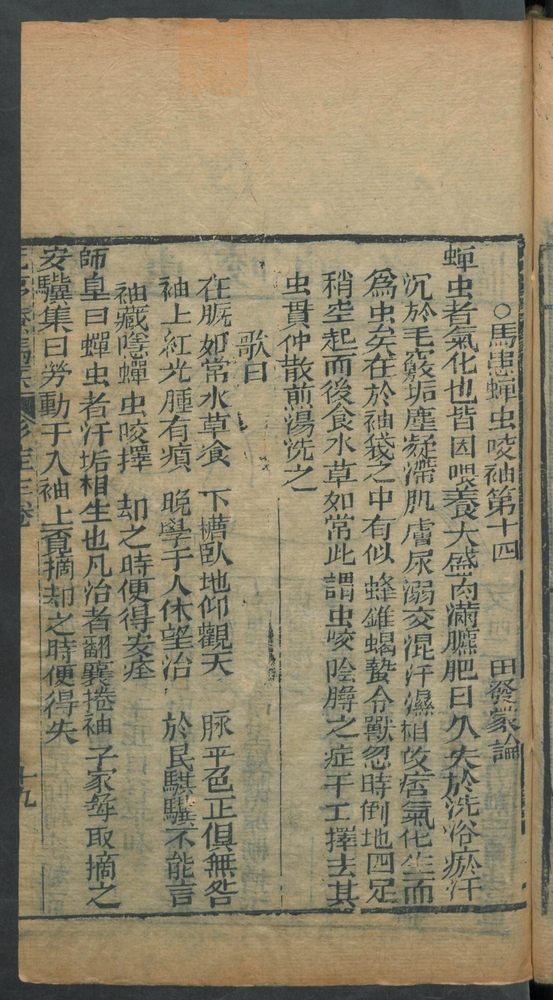 ○馬患蟬虫咬袖第十四 田發蒙論
蟬虫者氣化也皆因喂養大盛肉滿膘肥日久失於洗浴瘀汗
沉於毛竅垢塵凝滯肌膚尿溺交混汗濕相攻痞氣化生而
為虫矣在於袖袋之中有似蜂錐蝎蟄令獸忽時倒地四足
稍空起而後食水草如常此謂虫咬陰膊之症干工擇去其
虫貫仲散煎湯洗之
歌曰
在厩如常水草食 下槽臥地仰觀天 脉平色正俱無咎
袖上紅光腫有瘢 晚學于人休望治 於民騏驥不能言
袖藏隱蟬虫咬擇 却之時便得安痊
師皇曰蟬虫者汗垢相生也凡治者翻囊捲袖子家每取摘之
安驥集曰勞動于入袖上覓摘却之時便得失
十九